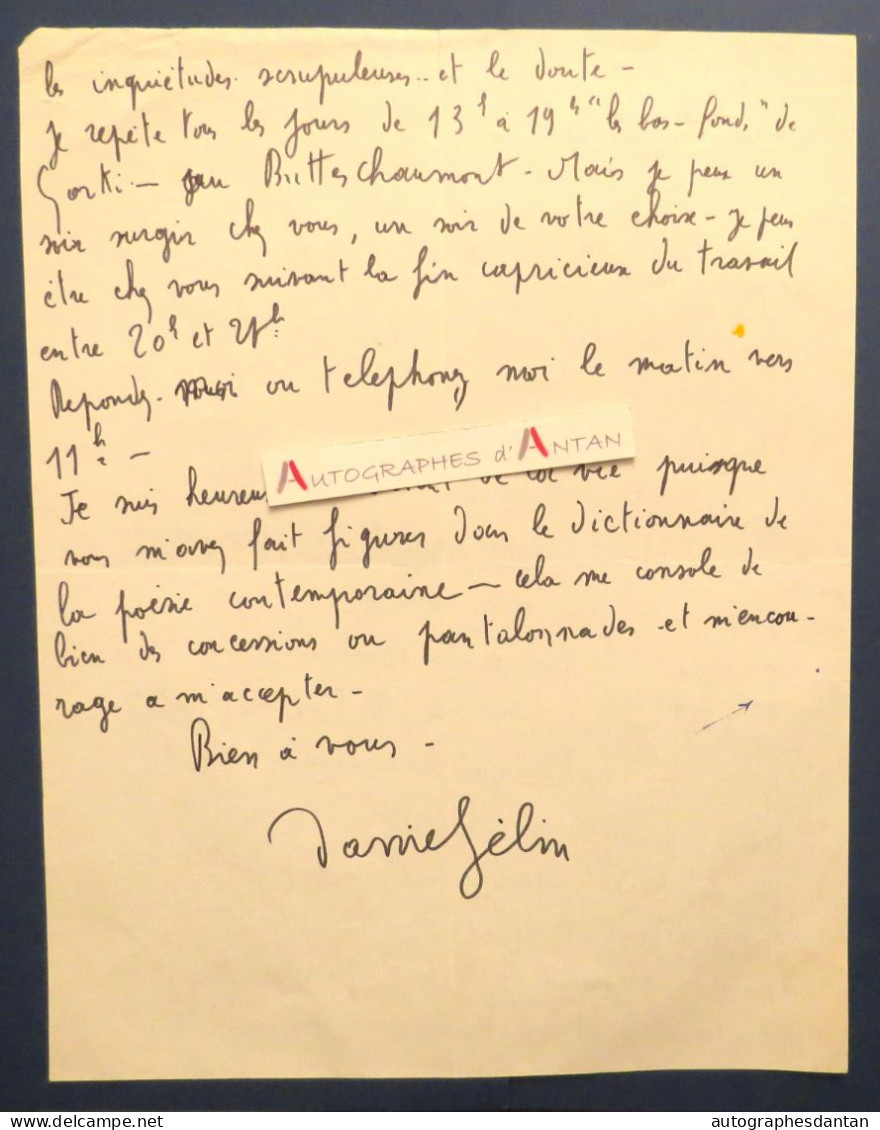 les inquiétudes scrupuleuses.. et le doute -
Je repète tous les jours de 13h à 19h "les bas-fonds" de
Gorki - au Buttes Chaumont - Mais je peux un
soir surgir chez vous, un soir de votre choix - je peux
être chez vous suivant la fin capricieux du travail
entre 20h et 21h
Repondez-moi ou telephonez moi le matin vers
11h -
AUTOGRAPHES d'ANTAN
Je suis heureux de la vie puisque
vous m'avez fait figurer dans le dictionnaire de
la poésie contemporaine - cela me console de
bien des concessions ou pantalonnades - et m'encou-
rage a m'accepter -
Bien à vous -
Daniel Gélin
autographesdantan
DELCAMPE.NET